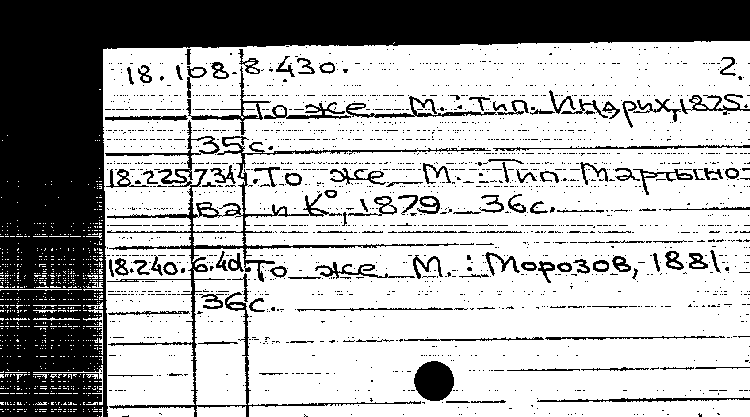 18.108.8.430. 2.
То же М.: Тип. Индрих, 1875.
35 с.
18.225.7.344. То же М.: Тип. Мартыно-
ва и К°, 1879. 36с.
18.240.6.401. То же. М.: Морозов, 1881.
36с.